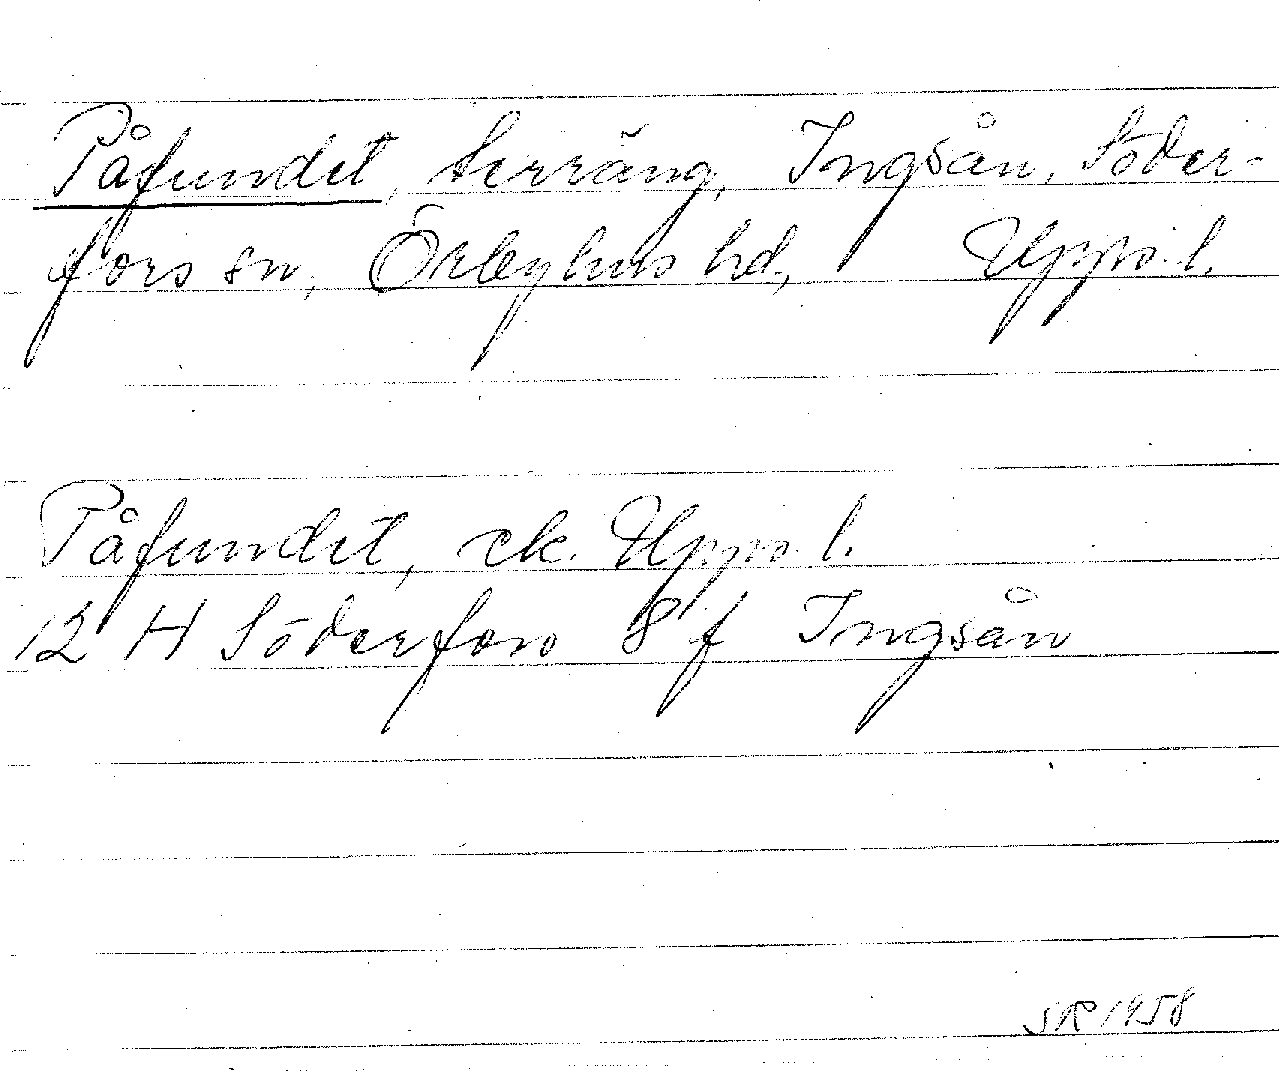 Påfundet, terräng, Ingsån, Söder-
fors sn, Örbyhus hd, Upps. l.
Påfundet, ek. Upps l.
12 H Söderfors 8 f Ingsån
SR 1958